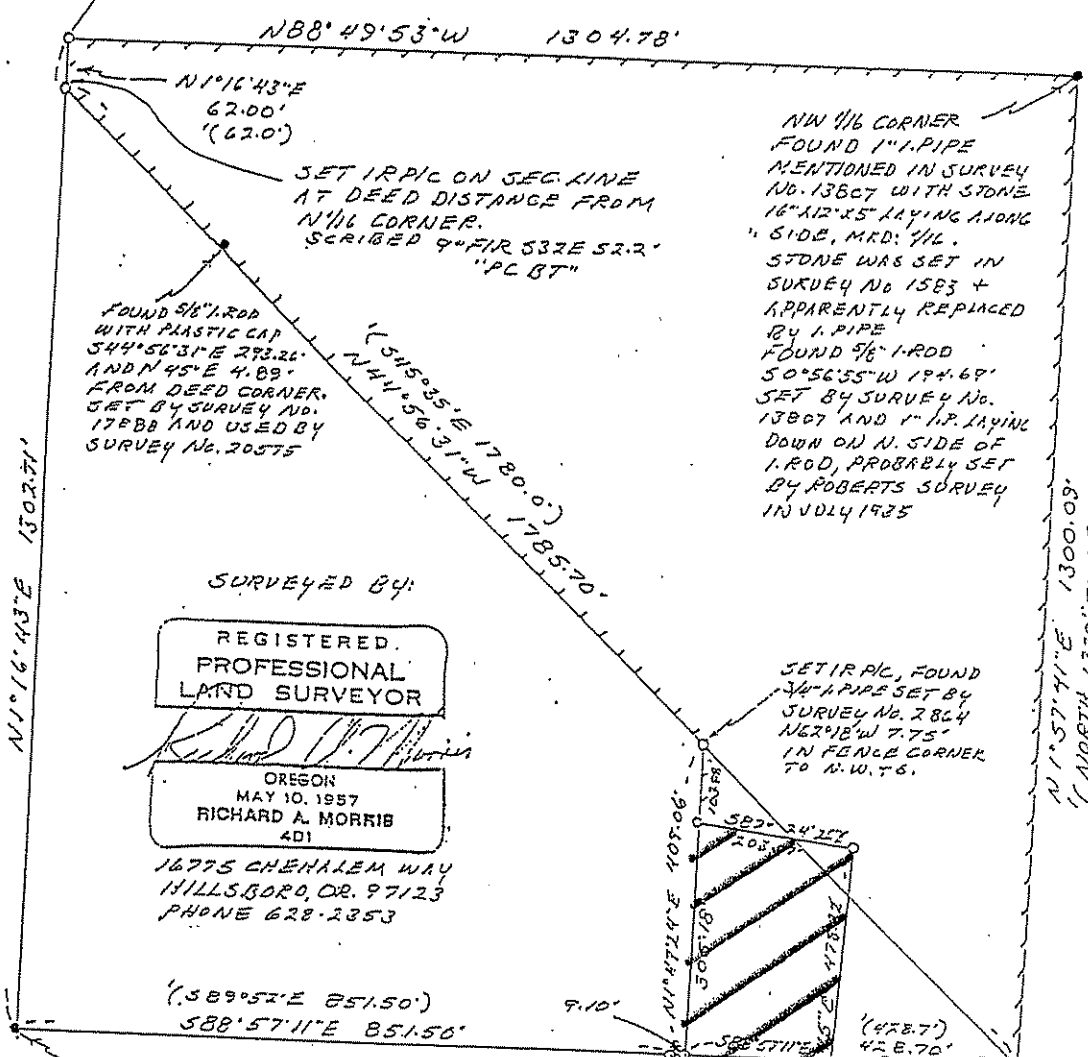 N88°49'53"W 1304.78'
N1°16'43"E
62.00'
'(62.0')
SET I.R.P/C ON SEC. LINE
AT DEED DISTANCE FROM
N 1/16 CORNER.
SCRIBED 9"FIR S32E 52.2'
"PC BT"
NW 1/16 CORNER
FOUND 1" I.PIPE
MENTIONED IN SURVEY
NO. 13807 WITH STONE
16"X12"X5" LAYING ALONG
SIDE, MKD: 1/16.
STONE WAS SET IN
SURVEY NO 1583 +
APPARENTLY REPLACED
BY I.PIPE
FOUND 5/8" I.ROD
S0°56'55"W 194.69'
SET BY SURVEY NO.
13807 AND 1" I.P. LAYING
DOWN ON N. SIDE OF
I.ROD, PROBABLY SET
BY ROBERTS SURVEY
IN JULY 1935
FOUND 5/8" I.ROD
WITH PLASTIC CAP
S44°56'31"E 293.26'
AND N 45°E 4.89'
FROM DEED CORNER.
SET BY SURVEY NO.
17888 AND USED BY
SURVEY No. 20575
'(S45°35'E 1780.0')
N44°56'31"W 1785.70'
N1°16'43"E 1302.71'
N1°57'41"E 1300.09'
'(NORTH
SURVEYED BY:
REGISTERED
PROFESSIONAL
LAND SURVEYOR
Richard A. Morris
OREGON
MAY 10, 1957
RICHARD A. MORRIS
401
16775 CHEHALEM WAY
HILLSBORO, OR. 97123
PHONE 628-2353
SET I.R.P/C, FOUND
3/4" I.PIPE SET BY
SURVEY NO. 2864
N62°18'W 7.75'
IN FENCE CORNER
TO N.W. + S.
103.88'
N1°47'24"E 409.06'
305.18'
'(S89°52'E 851.50')
S88°57'11"E 851.50'
9.10'
S88°57'11"E
'(428.7')
428.70'